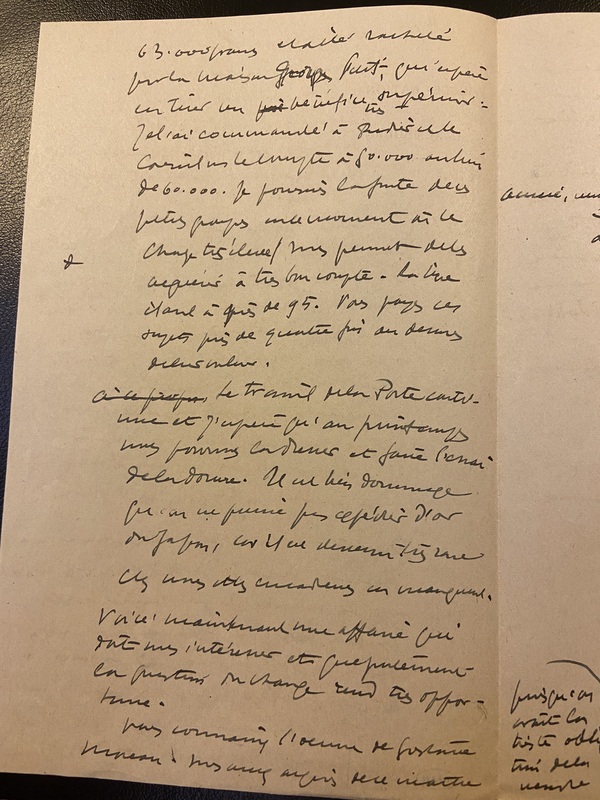 63.000 frans et a été racheté
par la maison Georges Petit, qui espère
en tirer un bénéfice très supérieur.
J'ai commandé à
le compte à 50.000 au lieu
de 60.000. Je poursuis la fonte de ces
petits groupes en ce moment où le
change très élevé nous permet de les
acquérir à très bon compte - La livre
étant à près de 95. Vous payez ces
sujets près de quatre fois au dessous
de leur valeur.
à ce propos, Le travail de la Porte conti-
nue et j'espère qu'au printemps
nous pourrons la dresser et faire l'essai
de la dorure. Il est bien dommage
qu'on ne puisse pas expédier d'or
du Japon, car il est devenu très rare
chez nous et les encadreurs en manquent.
Voici maintenant une affaire qui
doit nous intéresser et que justement
la question du change rend très oppor-
tune.
vous connaissez l'oeuvre de Gustave
Moreau. Vous avez acquis de ce maître
année, un
puisqu'on
avait la
triste obli
de la
vendre